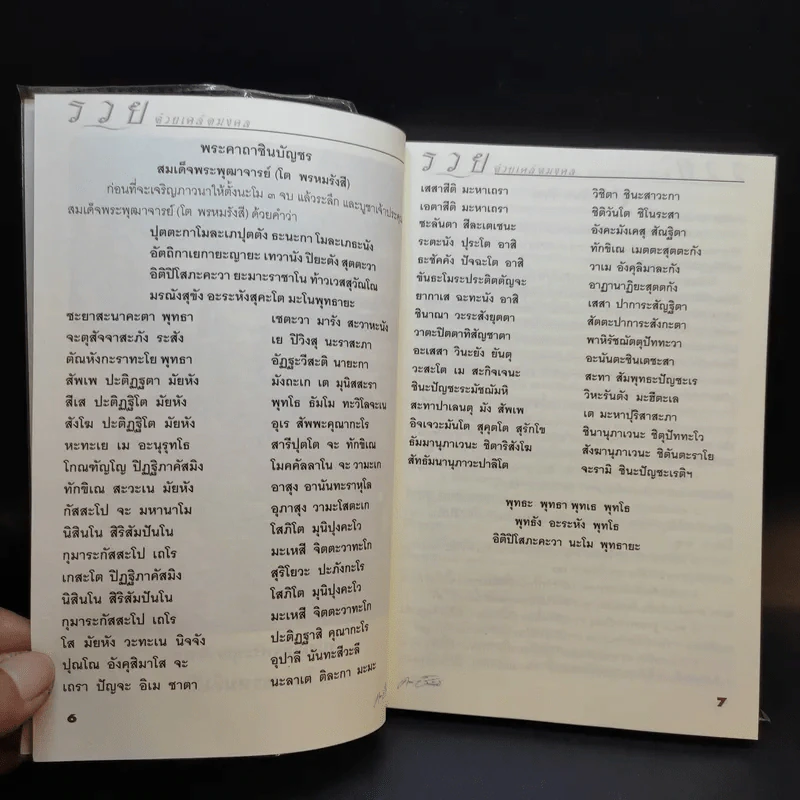 รวย
ด้วยเคล็ดมงคล
พระคาถาชินบัญชร
สมเด็จพระพุฒาจารย์ (โต พรหมรังสี)
ก่อนที่จะเจริญภาวนาให้ตั้งนะโม ๓ จบ แล้วระลึก และบูชาเจ้าประคุณ
สมเด็จพระพุฒาจารย์ (โต พรหมรังสี) ด้วยคำว่า
ปุตตะกาโมละเภปุตตัง ธะนะกา โมละเภธะนัง
อัตถิกาเยกายะญายะ เทวานัง ปิยะตัง สุตตะวา
อิติปิโสภะคะวา ยะมาะราชาโน ท้าวเวสสุวัณโณ
มรณังสุขัง อะระหังสุคะโต มะโนพุทธายะ
ชะยาสะนาคะตา พุทธา เชตะวา มารัง สะวาหะนัง
จะตุสัจจาสะภัง ระสัง เย ปิวิงสุ นะราสะภา
ตัณหังกะราทะโย พุทธา อัฏฐะวีสะติ นายะกา
สัพเพ ปะติฏฐตา มัยหัง มัตถะเก เต มุนิสสะรา
สีเส ปะติฏฐิโต มัยหัง พุทโธ ธัมโม ทะวิโลจะเน
สังโฆ ปะติฏฐิโต มัยหัง อุเร สัพพะคุณากะโร
หะทะเย เม อะนุรุทโธ สารีปุตโต จะ ทักขิเณ
โกณฑัญโญ ปิฏฐิภาคัสมิง โมคคัลลาโน จะ วามะเก
ทักขิเณ สะวะเน มัยหัง อาสุง อานันทะราหุโล
กัสสะโป จะ มหานาโม อุภาสุง วามะโสตะเก
นิสินโน สิริสัมปันโน โสภิโต มุนิปุงคะโว
กุมาระกัสสะโป เถโร มะเหสี จิตตะวาทะโก
เกสะโต ปิฏฐิภาคัสมิง สุริโยวะ ปะภังกะโร
นิสินโน สิริสัมปันโน โสภิโต มุนิปุงคะโว
กุมาระกัสสะโป เถโร มะเหสี จิตตะวาทะโก
โส มัยหัง วะทะเน นิจจัง ปะติฏฐาสิ คุณากะโร
ปุณโณ อังคุลิมาโส จะ อุปาลี นันทะสีวะลี
เถรา ปัญจะ อิเม ชาตา นะลาเต ติละกา มะมะ
6
รวย
ด้วยเคล็ดมงคล
เสสาสีติ มะหาเถรา วิชิตา ชินะสาวะกา
เอตาสีติ มะหาเถรา ชิติวันโต ชิโนระสา
ชะลันตา สีละเตเชนะ อังคะมังเคสุ สัณฐิตา
ระตะนัง ปุระโต อาสิ ทักขิเณ เมตตะสุตตะกัง
ธะชัคคัง ปัจฉะโต อาสิ วาเม อังคุลิมาละกัง
ขันธะโมระประติตตัญจะ อาฏานาฏิยะสุตตกัง
ยากาเส ฉะทะนัง อาสิ เสสา ปาการะสัญฐิตา
ชินาณา วะระสังยุตตา สัตตะปาการะสังกะตา
วาตะปิตตาทิสัญชาตา พาหิรัชณัตตุปัททะวา
อะเสสา วินะยัง ยันตุ อะนันตะชินเตชะสา
วะสะโต เม สะกิจเจนะ สะทา สัมพุทธะปัญชะเร
ชินะปัญชะระมัชฌัมหิ วิหะรันตัง มะฮีตะเล
สะทาปาเลนตุ มัง สัพเพ เต มะหาปุริสาสะภา
อิจเจวะมันโต สุคุตโต สุรักโข ชินานุภาเวนะ ชิตุปัททะโว
ธัมมานุภาเวนะ ชิตาริสังโฆ สังฆานุภาเวนะ ชิตันตะราโย
สัทธัมมานุภาวะปาลิโต จะรามิ ชินะปัญชะเรติฯ
พุทธะ พุทธา พุทเธ พุทโธ
พุทธัง อะระหัง พุทโธ
อิติปิโสภะคะวา นะโม พุทธายะ
7